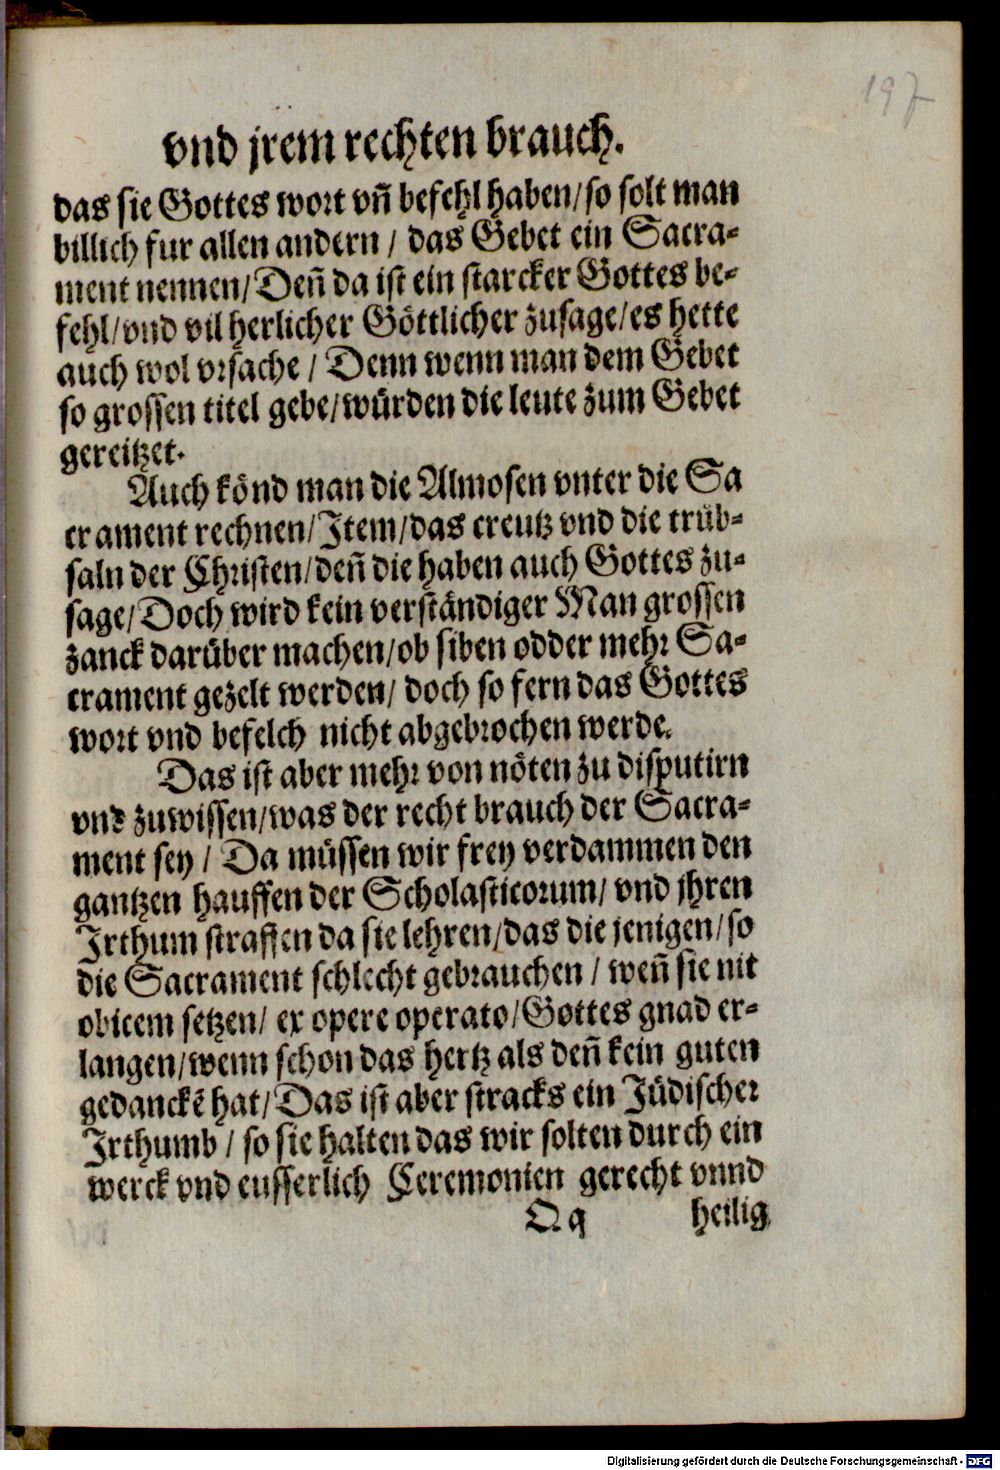 197
vnd jrem rechten brauch.
das sie Gottes wort vn̄ befehl haben/so solt man
billich fur allen andern / das Gebet ein Sacra-
ment nennen/Den̄ da ist ein starcker Gottes be-
fehl/vnd vil herlicher Göttlicher zusage/es hette
auch wol vrsache / Denn wenn man dem Gebet
so grossen titel gebe/würden die leute zum Gebet
gereitzet.
Auch könd man die Almosen vnter die Sa
crament rechnen/Item/das creutz vnd die trüb-
saln der Christen/den̄ die haben auch Gottes zu-
sage/Doch wird kein verständiger Man grossen
zanck darüber machen/ob siben odder mehr Sa-
crament gezelt werden/ doch so fern das Gottes
wort vnd befelch nicht abgebrochen werde.
Das ist aber mehr von nöten zu disputirn
vnd zuwissen/was der recht brauch der Sacra-
ment sey / Da müssen wir frey verdammen den
gantzen hauffen der Scholasticorum/ vnd jhren
Irthum straffen da sie lehren/das die jenigen/so
die Sacrament schlecht gebrauchen / wen̄ sie nit
obicem setzen/ ex opere operato/Gottes gnad er-
langen/wenn schon das hertz als den̄ kein guten
gedanckē hat/Das ist aber stracks ein Jüdischer
Irthumb / so sie halten das wir solten durch ein
werck vnd eusserlich Ceremonien gerecht vnnd
Qq heilig
Digitalisierung gefördert durch die Deutsche Forschungsgemeinschaft - DFG